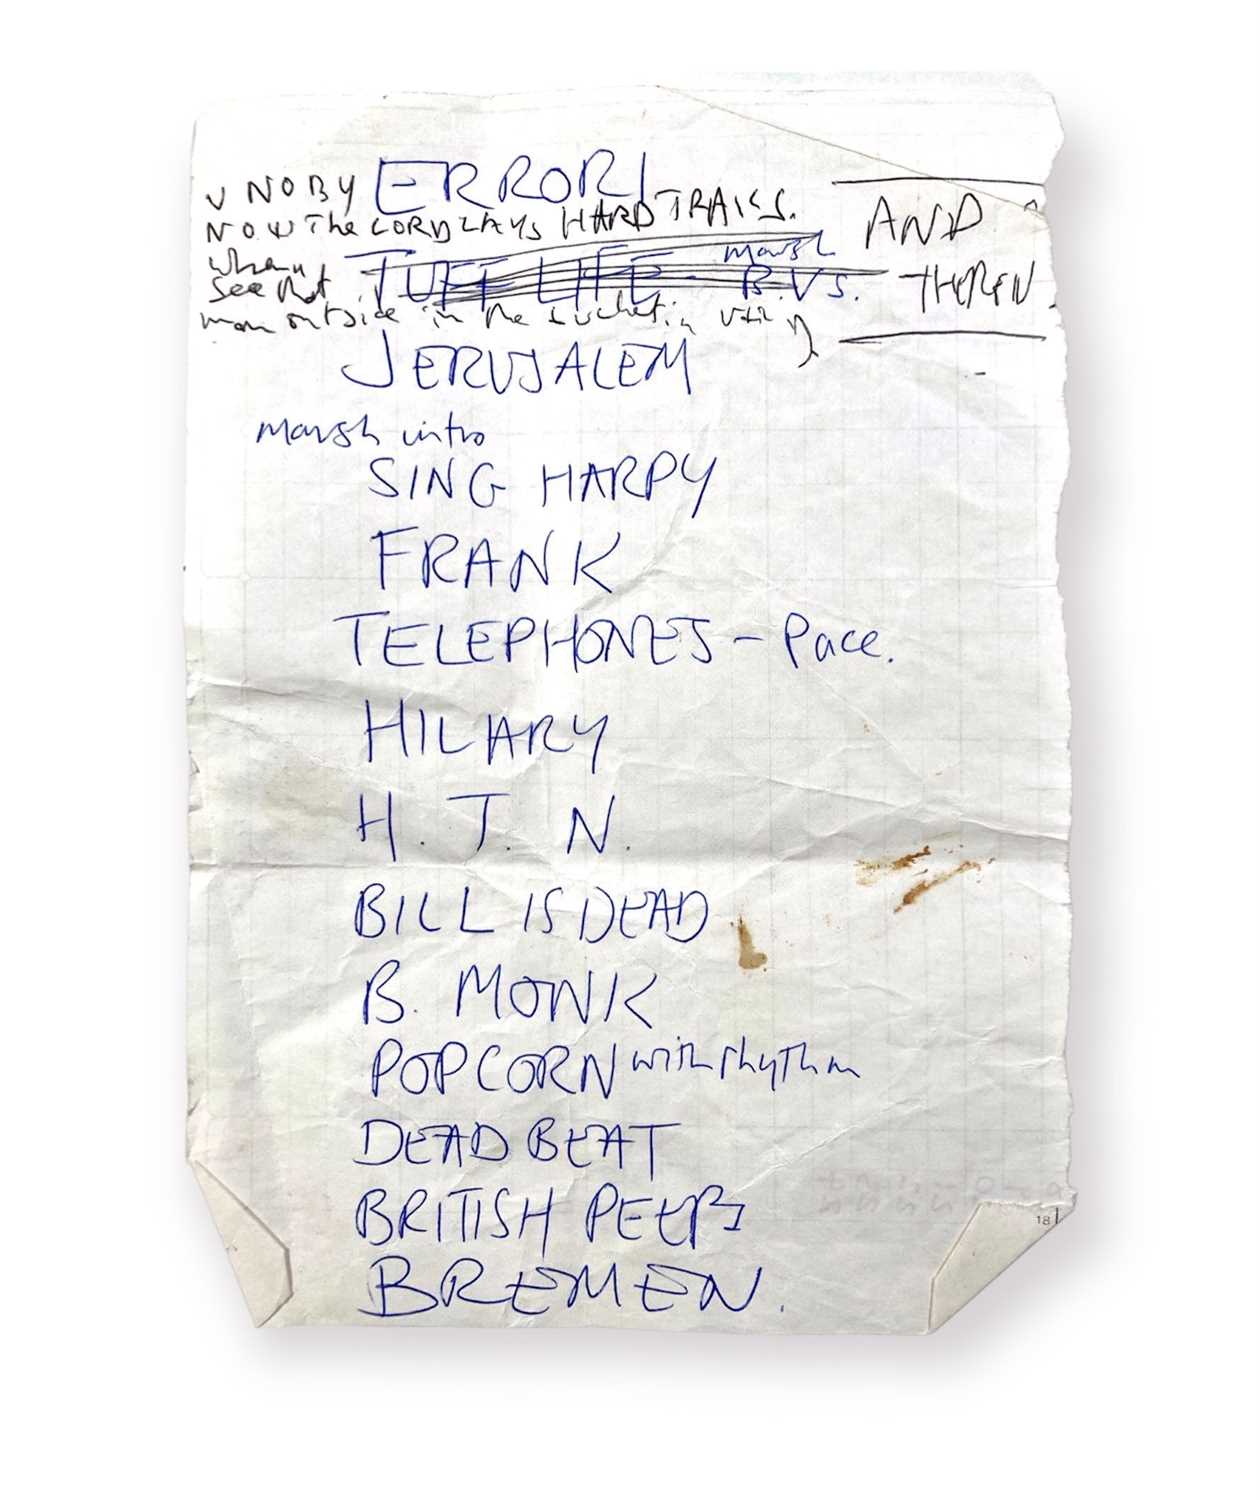 ERROR!
V NOBY
NOW The CORDLAYS HARD TRAILS.
AND
THEREN.
when u
see that
man outside in the
TUFF LIFE - marsh B.VS.
JERUSALEM
marsh intro
SING HARPY
FRANK
TELEPHONES - Pace.
HILARY
H. T. N.
BILL IS DEAD
B. MONK
POPCORN with rhythm
DEAD BEAT
BRITISH PEEPS
BREMEN.
18